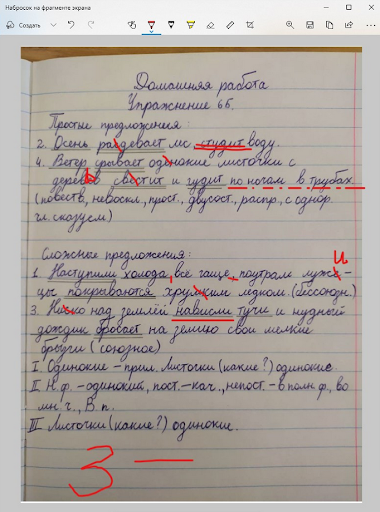 Набросок на фрагменте экрана
Создать
Домашняя работа
Упражнение 66.
Простые предложения:
2. Осень раздевает лес студит воду.
4. Ветер срывает одинокие листочки с
деревьев свистит и гудит по ногам в трубах
(повеств, невоскл, прост, двусост, распр., с однор.
гл. сказуем)
Сложные предложения:
1. Наступили холода, всё чаще поутрам лужи-
цы покрываются хрупким ледком. (бессоюзн.)
3. Низко над землёй нависли тучи и нудный
дождик бросает на землю свои мелкие
брызги (союзное)
I Одинокие - прил. Листочки (какие?) одинокие.
II Н.ф. - одинокий, пост. - кач., непост. - в полн. ф., во
мн. ч., В. п.
III Листочки (какие?) одинокие.
3 -